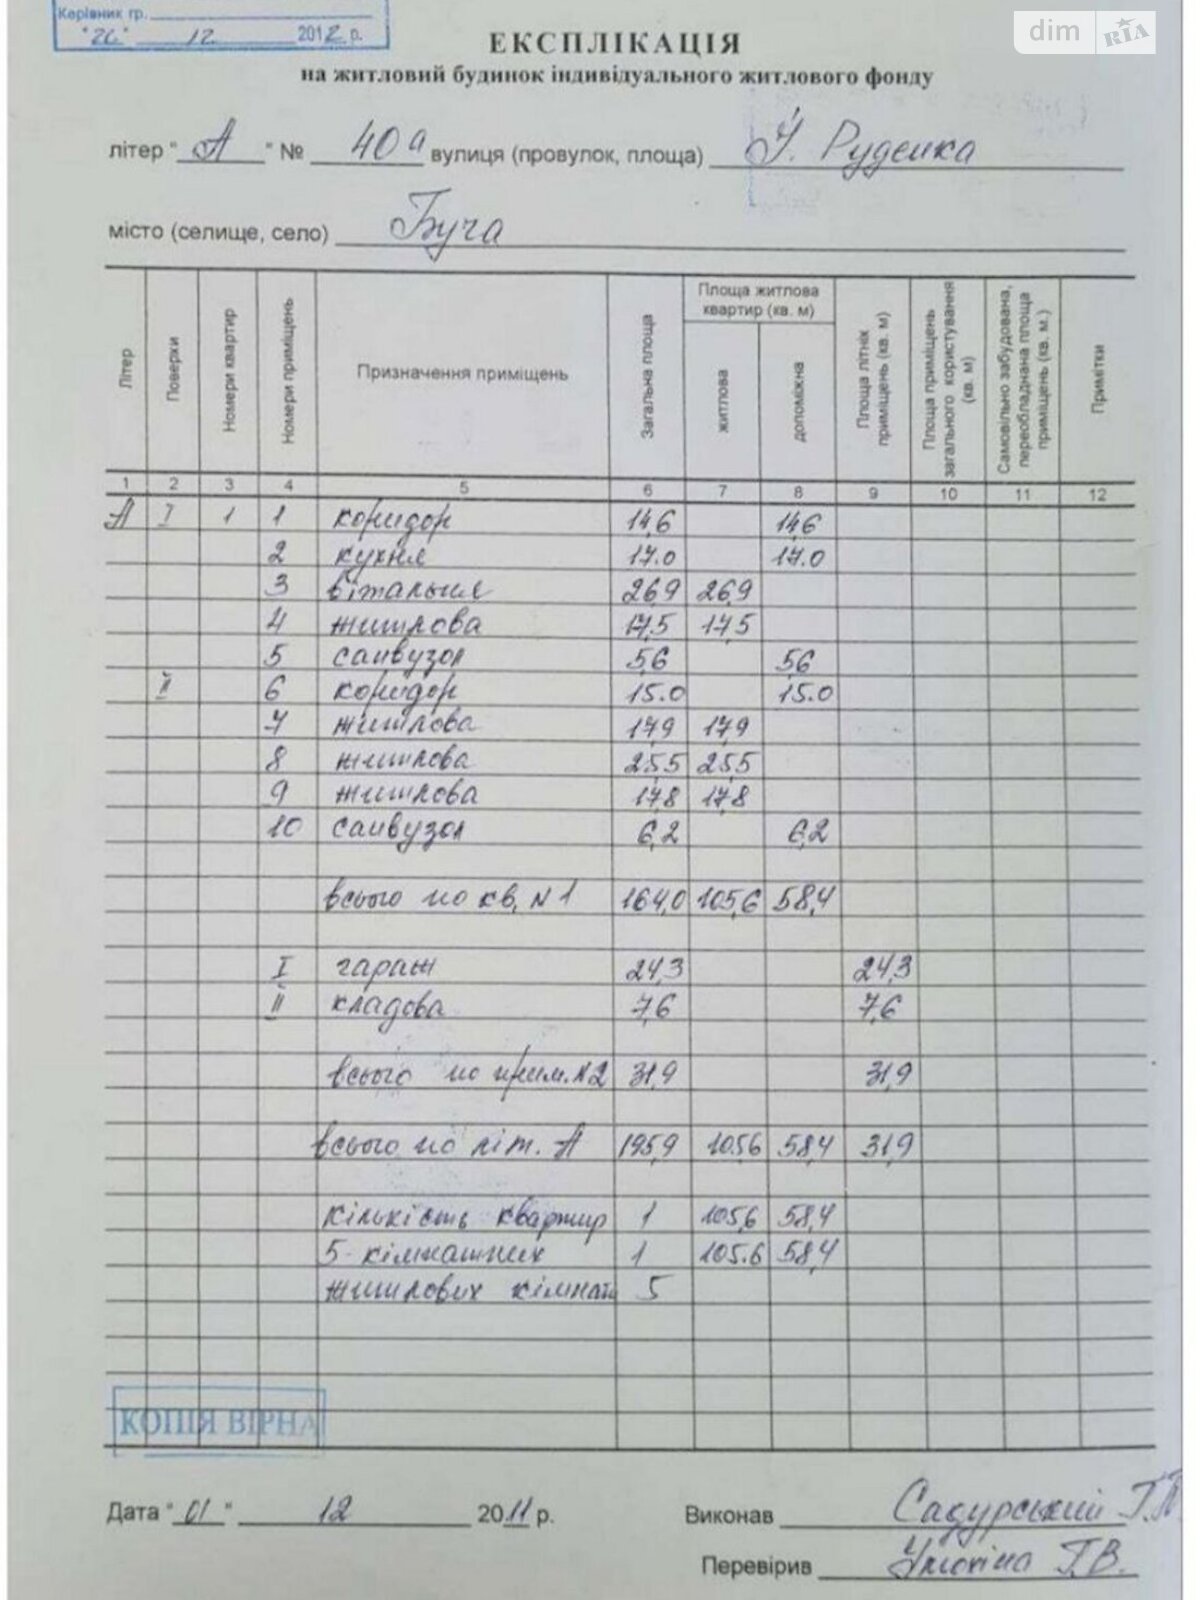 Керівник гр.
"26" 12 2012 р.
dim RIA
ЕКСПЛІКАЦІЯ
на житловий будинок індивідуального житлового фонду
літер "А" № 40а вулиця (провулок, площа) І. Руденка
місто (селище, село) Буча
Літер Поверхи Номери квартир Номери приміщень Призначення приміщень Загальна площа Площа житлова квартир (кв. м) житлова допоміжна Площа літніх приміщень (кв. м) Площа приміщень загального користування (кв. м) Самовільно забудована, переобладнана площа приміщень (кв. м.) Примітки
1 2 3 4 5 6 7 8 9 10 11 12
А I 1 1 коридор 14,6 14,6
2 кухня 17.0 17.0
3 вітальня 26,9 26,9
4 житлова 17,5 17,5
5 санвузол 5,6 5,6
II 6 коридор 15.0 15.0
7 житлова 17,9 17,9
8 житлова 25,5 25,5
9 житлова 17,8 17,8
10 санвузол 6,2 6,2
всього по кв. №1 164,0 105,6 58,4
I гараж 24,3 24,3
II кладова 7,6 7,6
всього по прим. №2 31,9 31,9
всього по літ. А 195,9 105,6 58,4 31,9
кількість квартир 1 105,6 58,4
5-кімнатних 1 105.6 58,4
житлових кімнат 5
КОПІЯ ВІРНА
Дата "01" 12 2011 р. Виконав Садурський Г.П.
Перевірив Г.В.